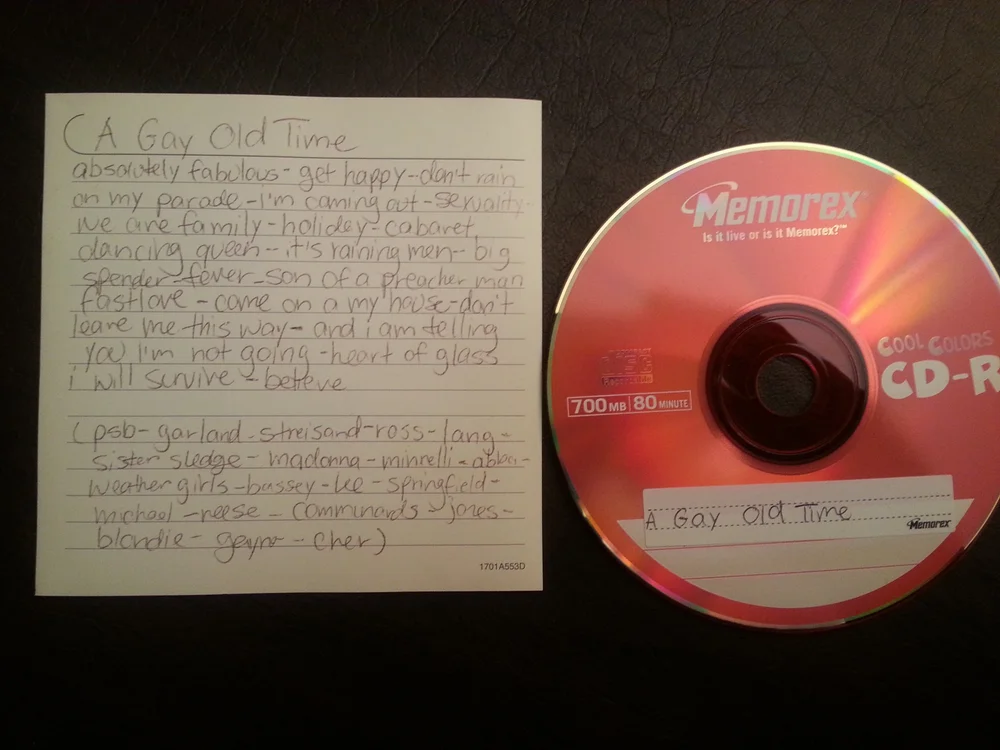 (A Gay Old Time
absolutely fabulous - get happy - don't rain
on my parade - i'm coming out - sexuality -
we are family - holiday - cabaret
dancing queen - it's raining men - big
spender - fever - son of a preacher man
fastlove - come on a my house - don't
leave me this way - and i am telling
you I'm not going - heart of glass
i will survive - believe
(psb - garland - streisand - ross - lang -
sister sledge - madonna - minnelli - abba -
weather girls - bassey - lee - springfield -
michael - reese - communards - jones -
blondie - gaynor - cher)
1701A553D
Memorex
Is it live or is it Memorex?™
COOL COLORS
CD-R
700 MB 80 MINUTE
A Gay Old Time
Memorex